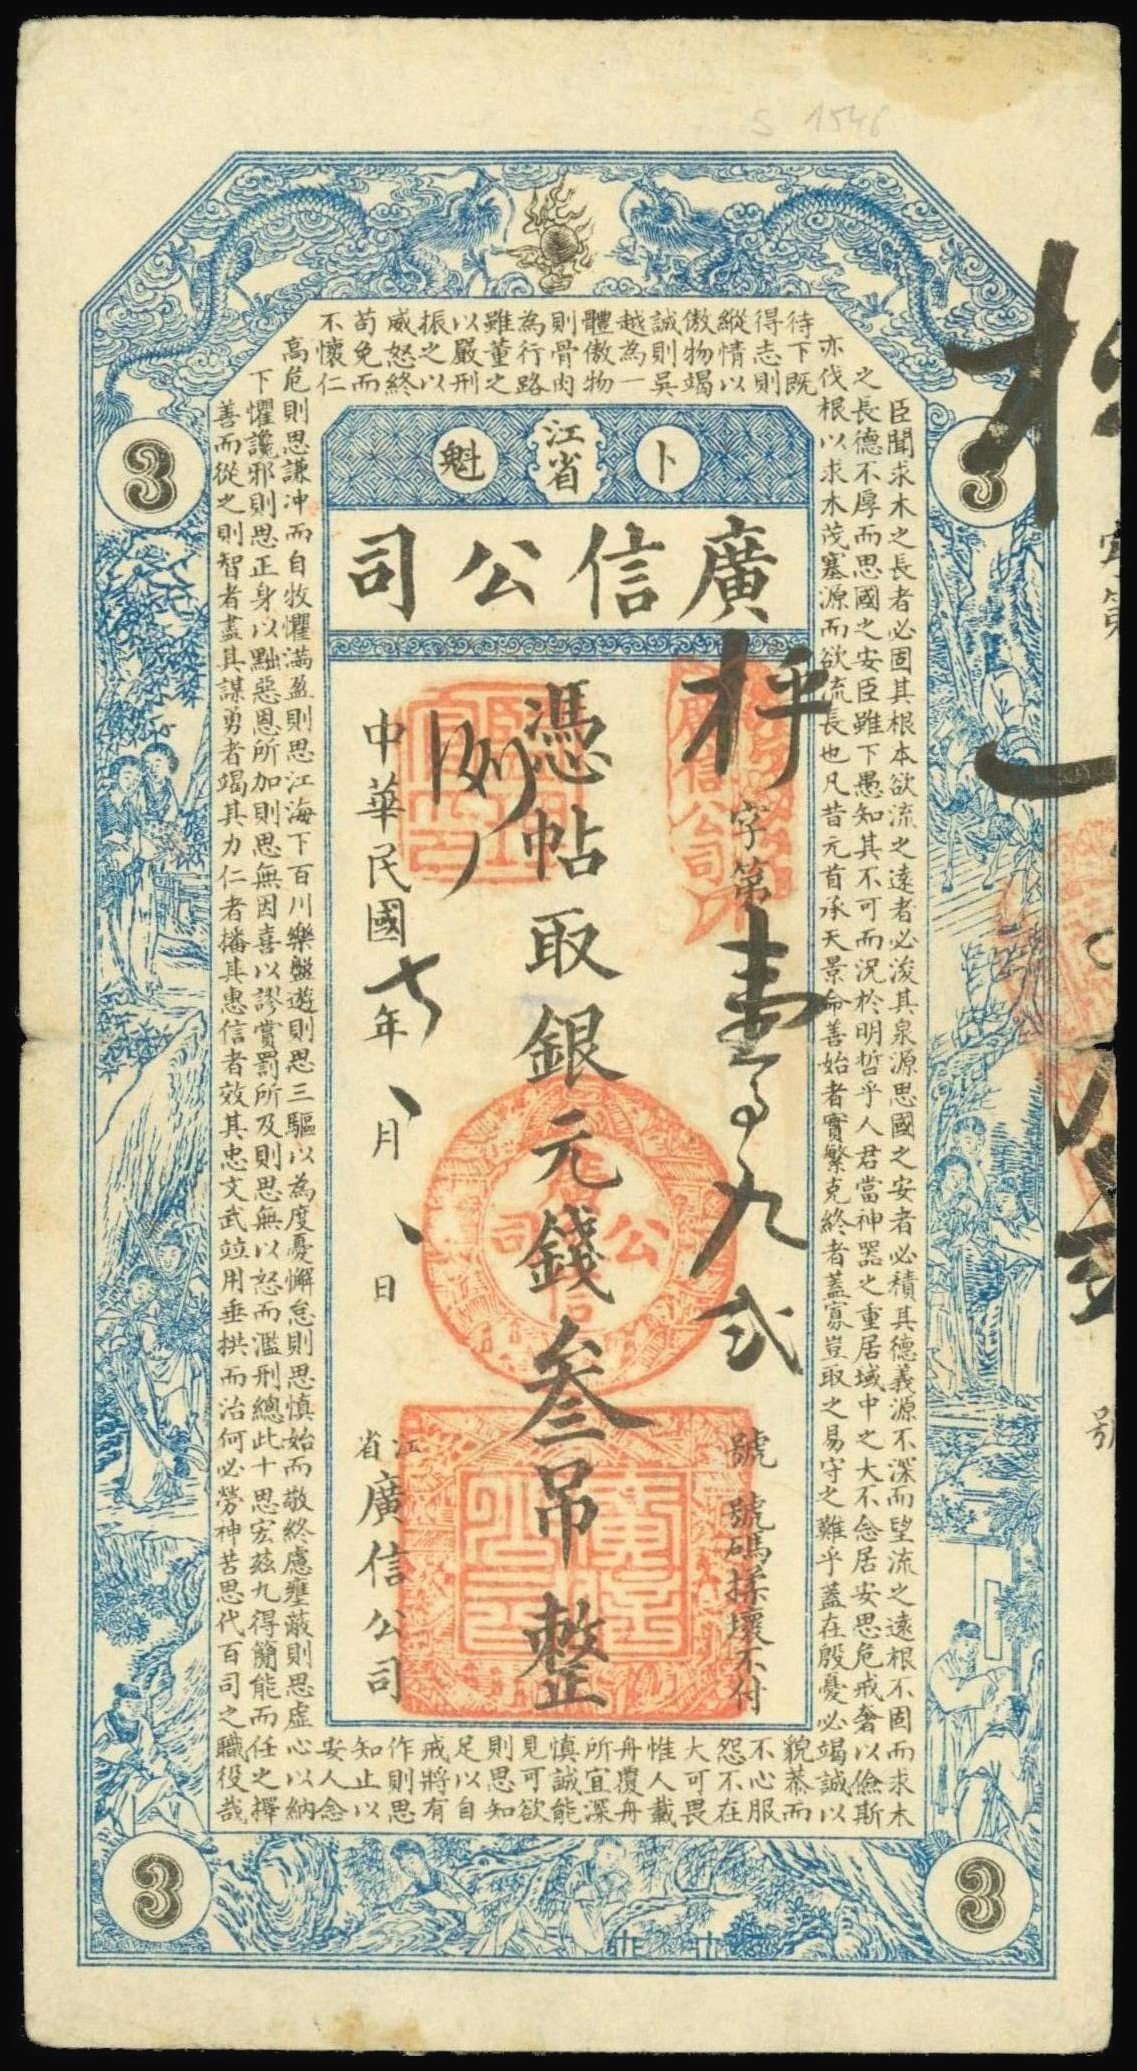 S 1546
卜江省魁
廣信公司
3
3
字第
號
枰字第壹百九弍號
號碼揉壞不付
憑帖取銀元錢叁吊整
中華民國七年 月 日
江省廣信公司
臣聞求木之長者必固其根本欲流之遠者必浚其泉源思國之安者必積其德義源不深而望流之遠根不固而求木
之長德不厚而思國之安臣雖下愚知其不可而況於明哲乎人君當神器之重居域中之大不念居安思危戒奢以儉斯
亦伐根以求木茂塞源而欲流長也凡昔元首承天景命善始者實繁克終者蓋寡豈取之易守之難乎蓋在殷憂必竭誠以
待下既
得志則
縱情以
傲物竭
誠則吳
越為一
體傲物
則骨肉
為行路
雖董之
以嚴刑
振之以
威怒終
苟免而
不懷仁
貌恭而
不心服
怨不在
大可畏
惟人載
舟覆舟
所宜深
慎誠能
見可欲
則思知
足以自
戒將有
作則思
知止以
安人念
高危則思謙冲而自牧懼滿盈則思江海下百川樂盤遊則思三驅以為度憂懈怠則思慎始而敬終慮壅蔽則思虛心以納
下懼讒邪則思正身以黜惡恩所加則思無因喜以謬賞罰所及則思無以怒而濫刑總此十思宏茲九得簡能而任之擇
善而從之則智者盡其謀勇者竭其力仁者播其惠信者效其忠文武竝用垂拱而治何必勞神苦思代百司之職役哉
廣信公司
3
3